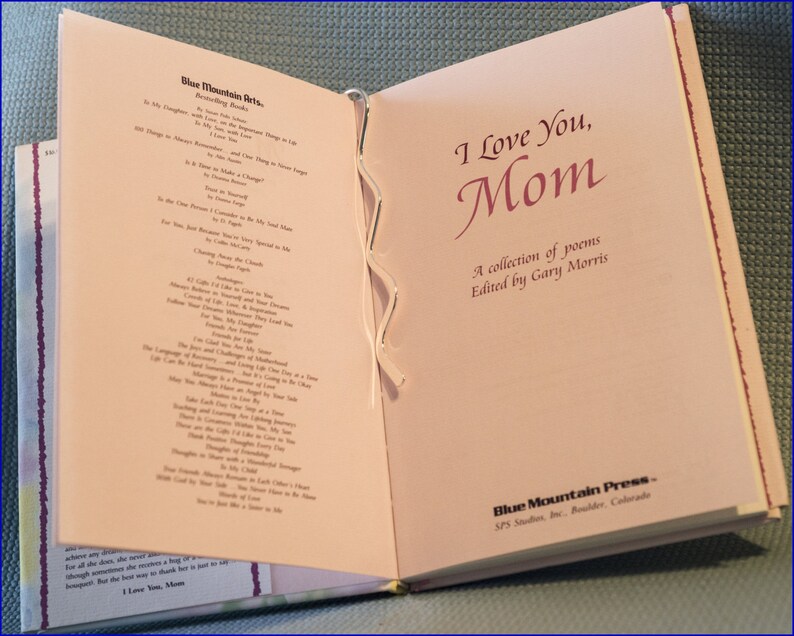 Blue Mountain Arts®
Bestselling Books
By Susan Polis Schutz
To My Daughter, with Love, on the Important Things in Life
To My Son, with Love
I Love You
100 Things to Always Remember... and One Thing to Never Forget
by Alin Austin
Is It Time to Make a Change?
by Deanna Beisser
Trust in Yourself
by Donna Fargo
To the One Person I Consider to Be My Soul Mate
by D. Pagels
For You, Just Because You're Very Special to Me
by Collin McCarty
Chasing Away the Clouds
by Douglas Pagels
Anthologies:
42 Gifts I'd Like to Give to You
Always Believe in Yourself and Your Dreams
Creeds of Life, Love, & Inspiration
Follow Your Dreams Wherever They Lead You
For You, My Daughter
Friends Are Forever
Friends for Life
I'm Glad You Are My Sister
The Joys and Challenges of Motherhood
The Language of Recovery ...and Living Life One Day at a Time
Life Can Be Hard Sometimes ...but It's Going to Be Okay
Marriage Is a Promise of Love
May You Always Have an Angel by Your Side
Mottos to Live By
Take Each Day One Step at a Time
Teaching and Learning Are Lifelong Journeys
There Is Greatness Within You, My Son
These are the Gifts I'd Like to Give to You
Think Positive Thoughts Every Day
Thoughts of Friendship
Thoughts to Share with a Wonderful Teenager
To My Child
True Friends Always Remain in Each Other's Heart
With God by Your Side ...You Never Have to Be Alone
Words of Love
You're Just like a Sister to Me
achieve any
For all she does, she never
(though sometimes she receives a hug or a
bouquet). But the best way to thank her is just to say
I Love You, Mom
I Love You,
Mom
A collection of poems
Edited by Gary Morris
Blue Mountain Press™
SPS Studios, Inc., Boulder, Colorado